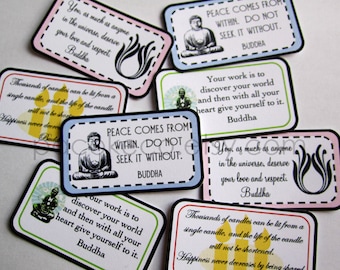 You, as much as anyone
in the universe, deserve
your love and respect.
Buddha
PEACE COMES FROM
WITHIN. DO NOT
SEEK IT WITHOUT.
BUDDHA
Thousands of candles can be lit from a
single candle, and the life of the candle
will not be
Happiness never
Buddha
Your work is to
discover your world
and then with all your
heart give yourself to it.
Buddha
PEACE COMES FROM
WITHIN. DO NOT
SEEK IT WITHOUT.
BUDDHA
You, as much as anyone
in the universe, deserve
your love and respect.
Buddha
Your work is to
discover your world
and then with all your
heart give yourself to it.
Buddha
Thousands of candles can be lit from a
single candle, and the life of the candle
will not be shortened.
Happiness never decreases by being shared.